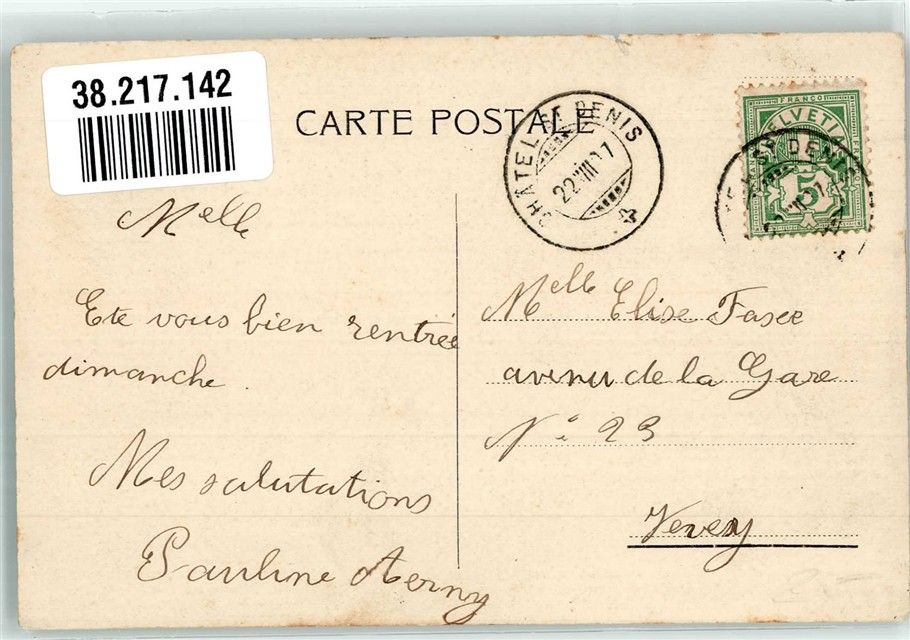 38.217.142
CARTE POSTALE
CHATEL ST DENIS
22 VIII 07
FRANCO
HELVETIA
5
Melle
Ete vous bien rentrée
dimanche.
Mes salutations
Pauline Aerny
Melle Elise Fasee
avenu de la Gare
No 23
Vevey